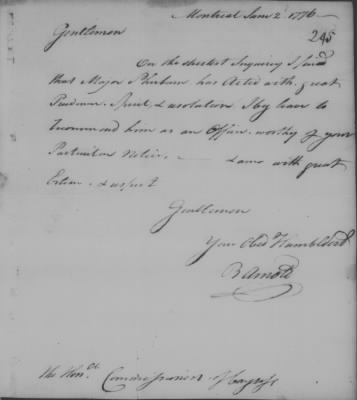 Montreal June 2d 1776
245
Gentlemen
On the strictest Inquiry I find
that Major Sherburn has Acted with great
Prudence, Spirit, & resolution I beg leave to
recommend him as an Officer worthy of your
Particular Notice. — & am with great
Esteem & respect
Gentlemen
Your Obed Humble Servt
B Arnold
The Honble Commissioners of Congress